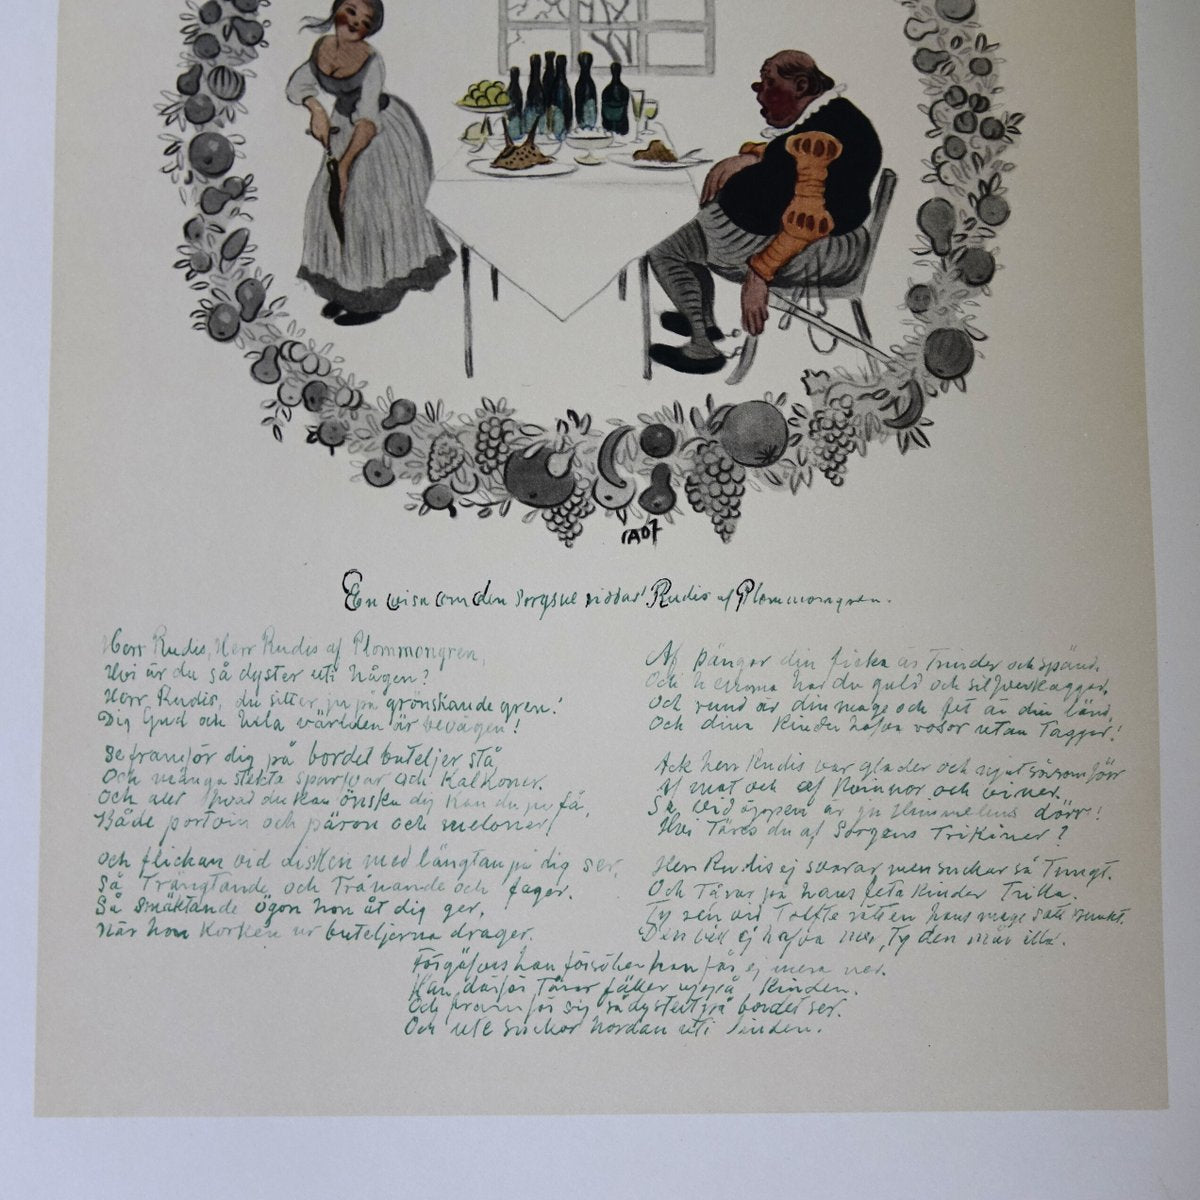 IA07
En visa om den sorgsne riddar' Rudis af Plommongren.
Herr Rudis, Herr Rudis af Plommongren,
Hvi är du så dyster uti hågen?
Herr Rudis, du sitter ju på grönskande gren!
Dig Gud och hela världen är bevågen!
Se framför dig på bordet buteljer stå
Och många stekta sparfvar och kalkoner.
Och allt hvad du kan önska dig kan du ju få,
Både portvin och päron och meloner!
Och flickan vid disken med längtan på dig ser,
Så trängtande och trånande och fager.
Så smäktande ögon hon åt dig ger,
När hon korken ur buteljerna drager.
Af pängar din ficka är trinder och spänd.
Och hemma har du guld och silfverkaggar.
Och rund är din mage och fet är din länd,
Och dina kinder hafva rosor utan taggar!
Ack herr Rudis var glader och njut såsom förr
Af mat och af kvinnor och viner.
Så vid öppen är ju himmelens dörr!
Hvi täres du af sorgens trikiner?
Herr Rudis ej svarar men suckar så tungt.
Och tårar på hans feta kinder trilla.
Ty ren vid tolfte rätten hans mage satt punkt.
Den vill ej hafva mer, ty den mår illa.
Förgäfves han försöker han får ej mera ner.
Han därför tårar fäller uppå kinden.
Och framför sig så dystert på bordet ser.
Och ute suckar nordan uti linden.